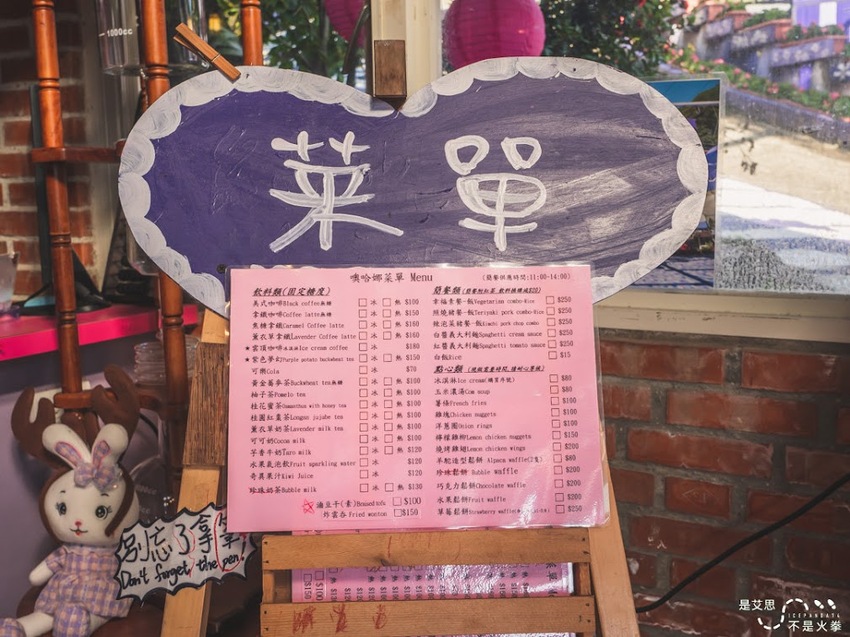 1000cc
菜單
噢哈娜菜單 Menu (簡餐供應時間:11:00-14:00)
飲料類(固定糖度)
美式咖啡Black coffee無糖 冰 熱 $100
拿鐵咖啡Coffee latte無糖 冰 熱 $150
焦糖拿鐵Caramel Coffee latte 冰 熱 $160
薰衣草拿鐵Lavender Coffee latte 冰 熱 $160
★雲頂咖啡冰淇淋Ice cream coffee 冰 $180
★紫色夢幻Purple potato buckwheat tea 冰 熱 $150
可樂Cola 冰 $70
黃金蕎麥茶Buckwheat tea無糖 冰 熱 $100
柚子茶Pomelo tea 冰 熱 $100
桂花蜜茶Osmanthus with honey tea 冰 熱 $100
桂圓紅棗茶Longan jujube tea 冰 熱 $100
薰衣草奶茶Lavender milk tea 冰 熱 $100
可可奶Cocoa milk 冰 熱 $100
芋香牛奶Taro milk 冰 熱 $120
水果氣泡飲Fruit sparkling water 冰 $120
奇異果汁Kiwi Juice 冰 $120
珍珠奶茶Bubble milk 冰 熱 $130
滷豆干(素)Braised tofu $100
炸雲吞 Fried wonton $150
簡餐類
幸福素餐-飯Vegetarian combo-Rice $250
照燒豬餐-飯Teriyaki pork combo-Rice $250
辣泡菜豬餐-飯Kimchi pork chop combo $250
白醬義大利麵Spaghetti cream sauce $250
紅醬義大利麵Spaghetti tomato sauce $250
白飯Rice $15
點心類
冰淇淋Ice cream $80
玉米濃湯Corn soup $80
薯條French fries $100
雞塊Chicken nuggets $100
洋蔥圈Onion rings $100
檸檬雞柳Lemon chicken nuggets $150
燒烤雞翅Lemon chicken wings $200
羊駝造型鬆餅 Alpaca waffle $80
珍珠鬆餅 Bubble waffle $200
巧克力鬆餅Chocolate waffle $200
水果鬆餅Fruit waffle $200
草莓鬆餅Strawberry waffle $250
別忘了拿筆!
Don't forget the pen!
是艾思
ICEPANDAYA
不是火拳